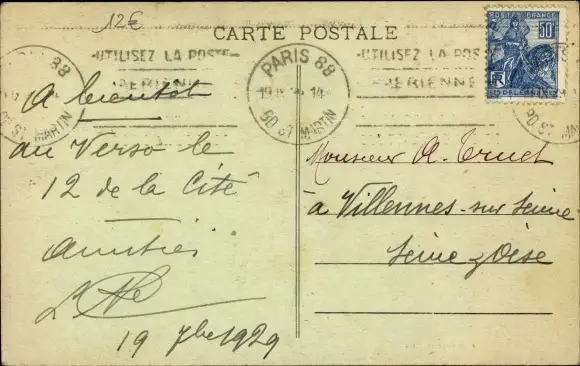 12€
CARTE POSTALE
PARIS 88
BD ST MARTIN
-UTILISEZ LA POSTE-
AERIENNE
PARIS 88
19 14
BD ST MARTIN
-UTILISEZ LA POSTE
AERIENNE
POSTES FRANCE
50c
RF
A bientôt
au Verso le
12 de la Cité
Amitiés
19 7bre 1929
Monsieur A. Truet
à Villennes-sur Seine
Seine & Oise